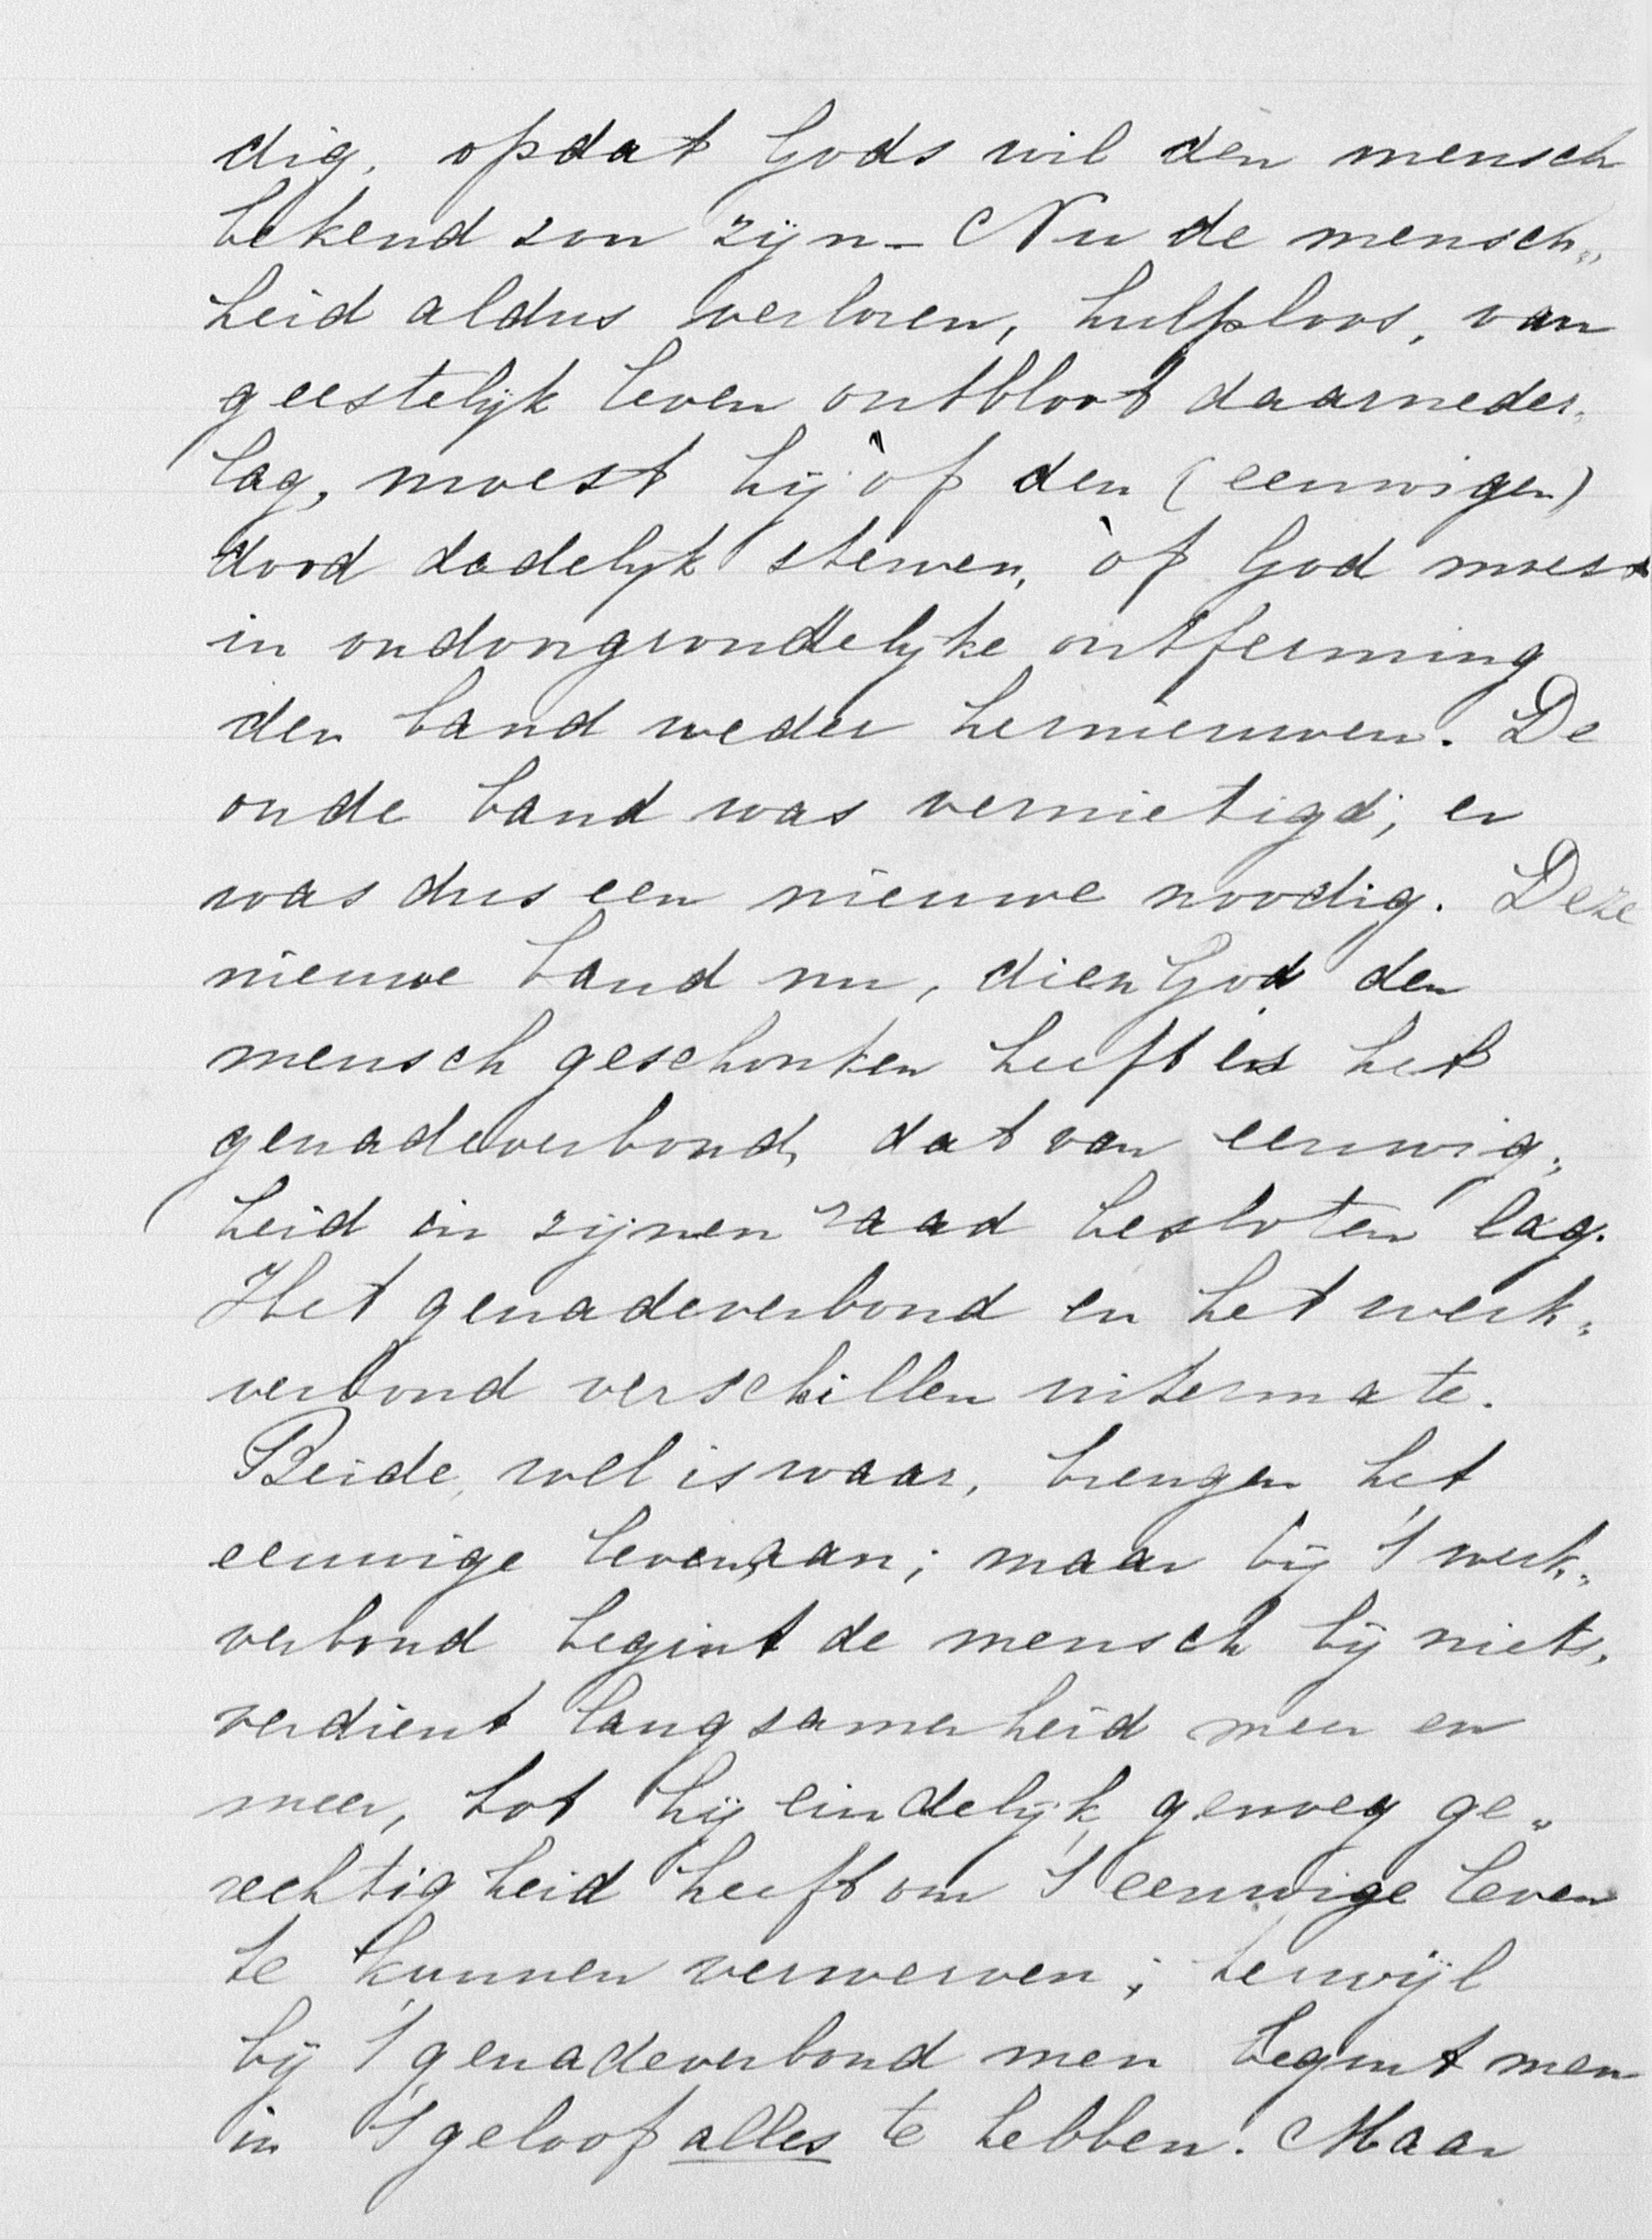 dig, opdat Gods wil den mensch
bekend zou zijn – Nu de mensch„
heid aldus verloren, hulploos, van
geestelijk leven ontbloot daarneder„
lag, moest hij òf den (eeuwigen)
dood dadelijk sterven, òf God moest
in ondoorgrondelijke ontferming
den band weder hernieuwen. De
oude band was vernietigd; er
was dus een nieuwe noodig. Deze
nieuwe band nu, dien God den
mensch geschonken heeft is het
genadeverbond, dat van eeuwig„
heid in zijnen raad besloten lag.
Het genadeverbond en het werk„
verbond verschillen uitermate.
Beide, wel is waar, brengen het
eeuwige leven aan; maar bij 't werk„
verbond begint de mensch bij niets,
verdient langsamerheid meer en
meer, tot hij eindelijk genoeg ge„
rechtigheid heeft om 't eeuwige leven
te kunnen verwerven; terwijl
bij 't genadeverbond men begint men
in 't geloof alles te hebben. Maar